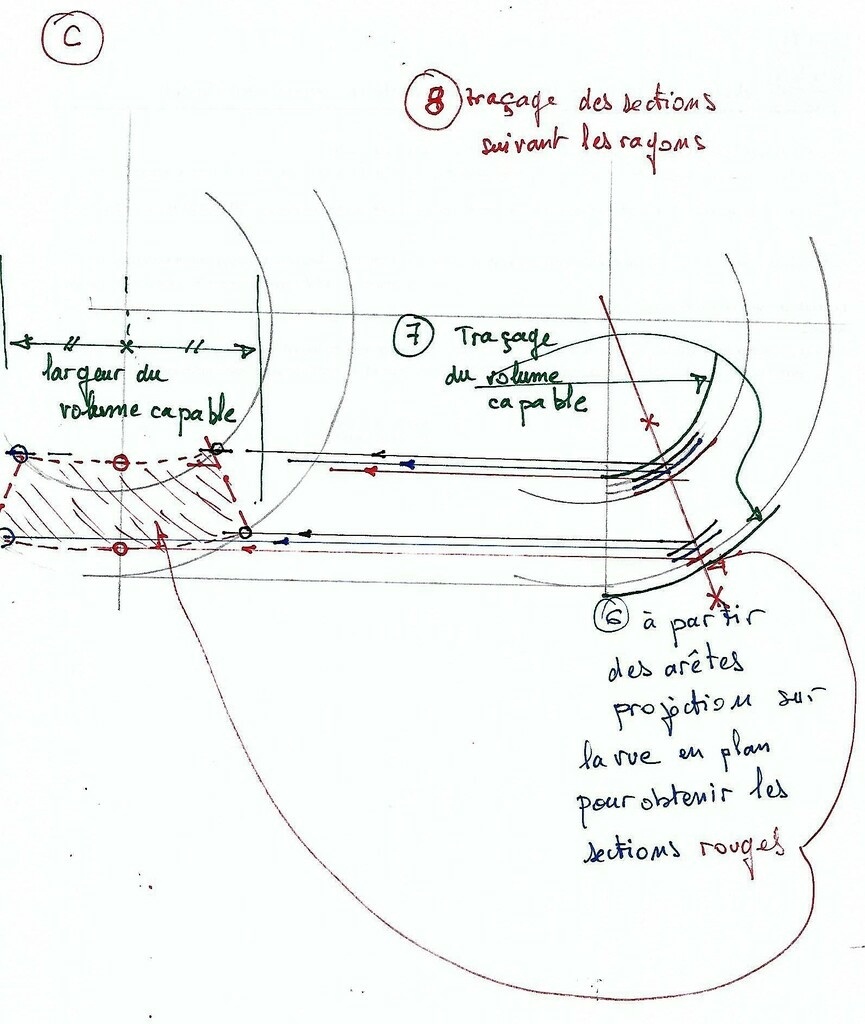 C
8 traçage des sections
suivant les rayons
7 Traçage
du volume
capable
largeur du
volume capable
6 à partir
des arêtes
projection sur
la vue en plan
pour obtenir les
sections rouges